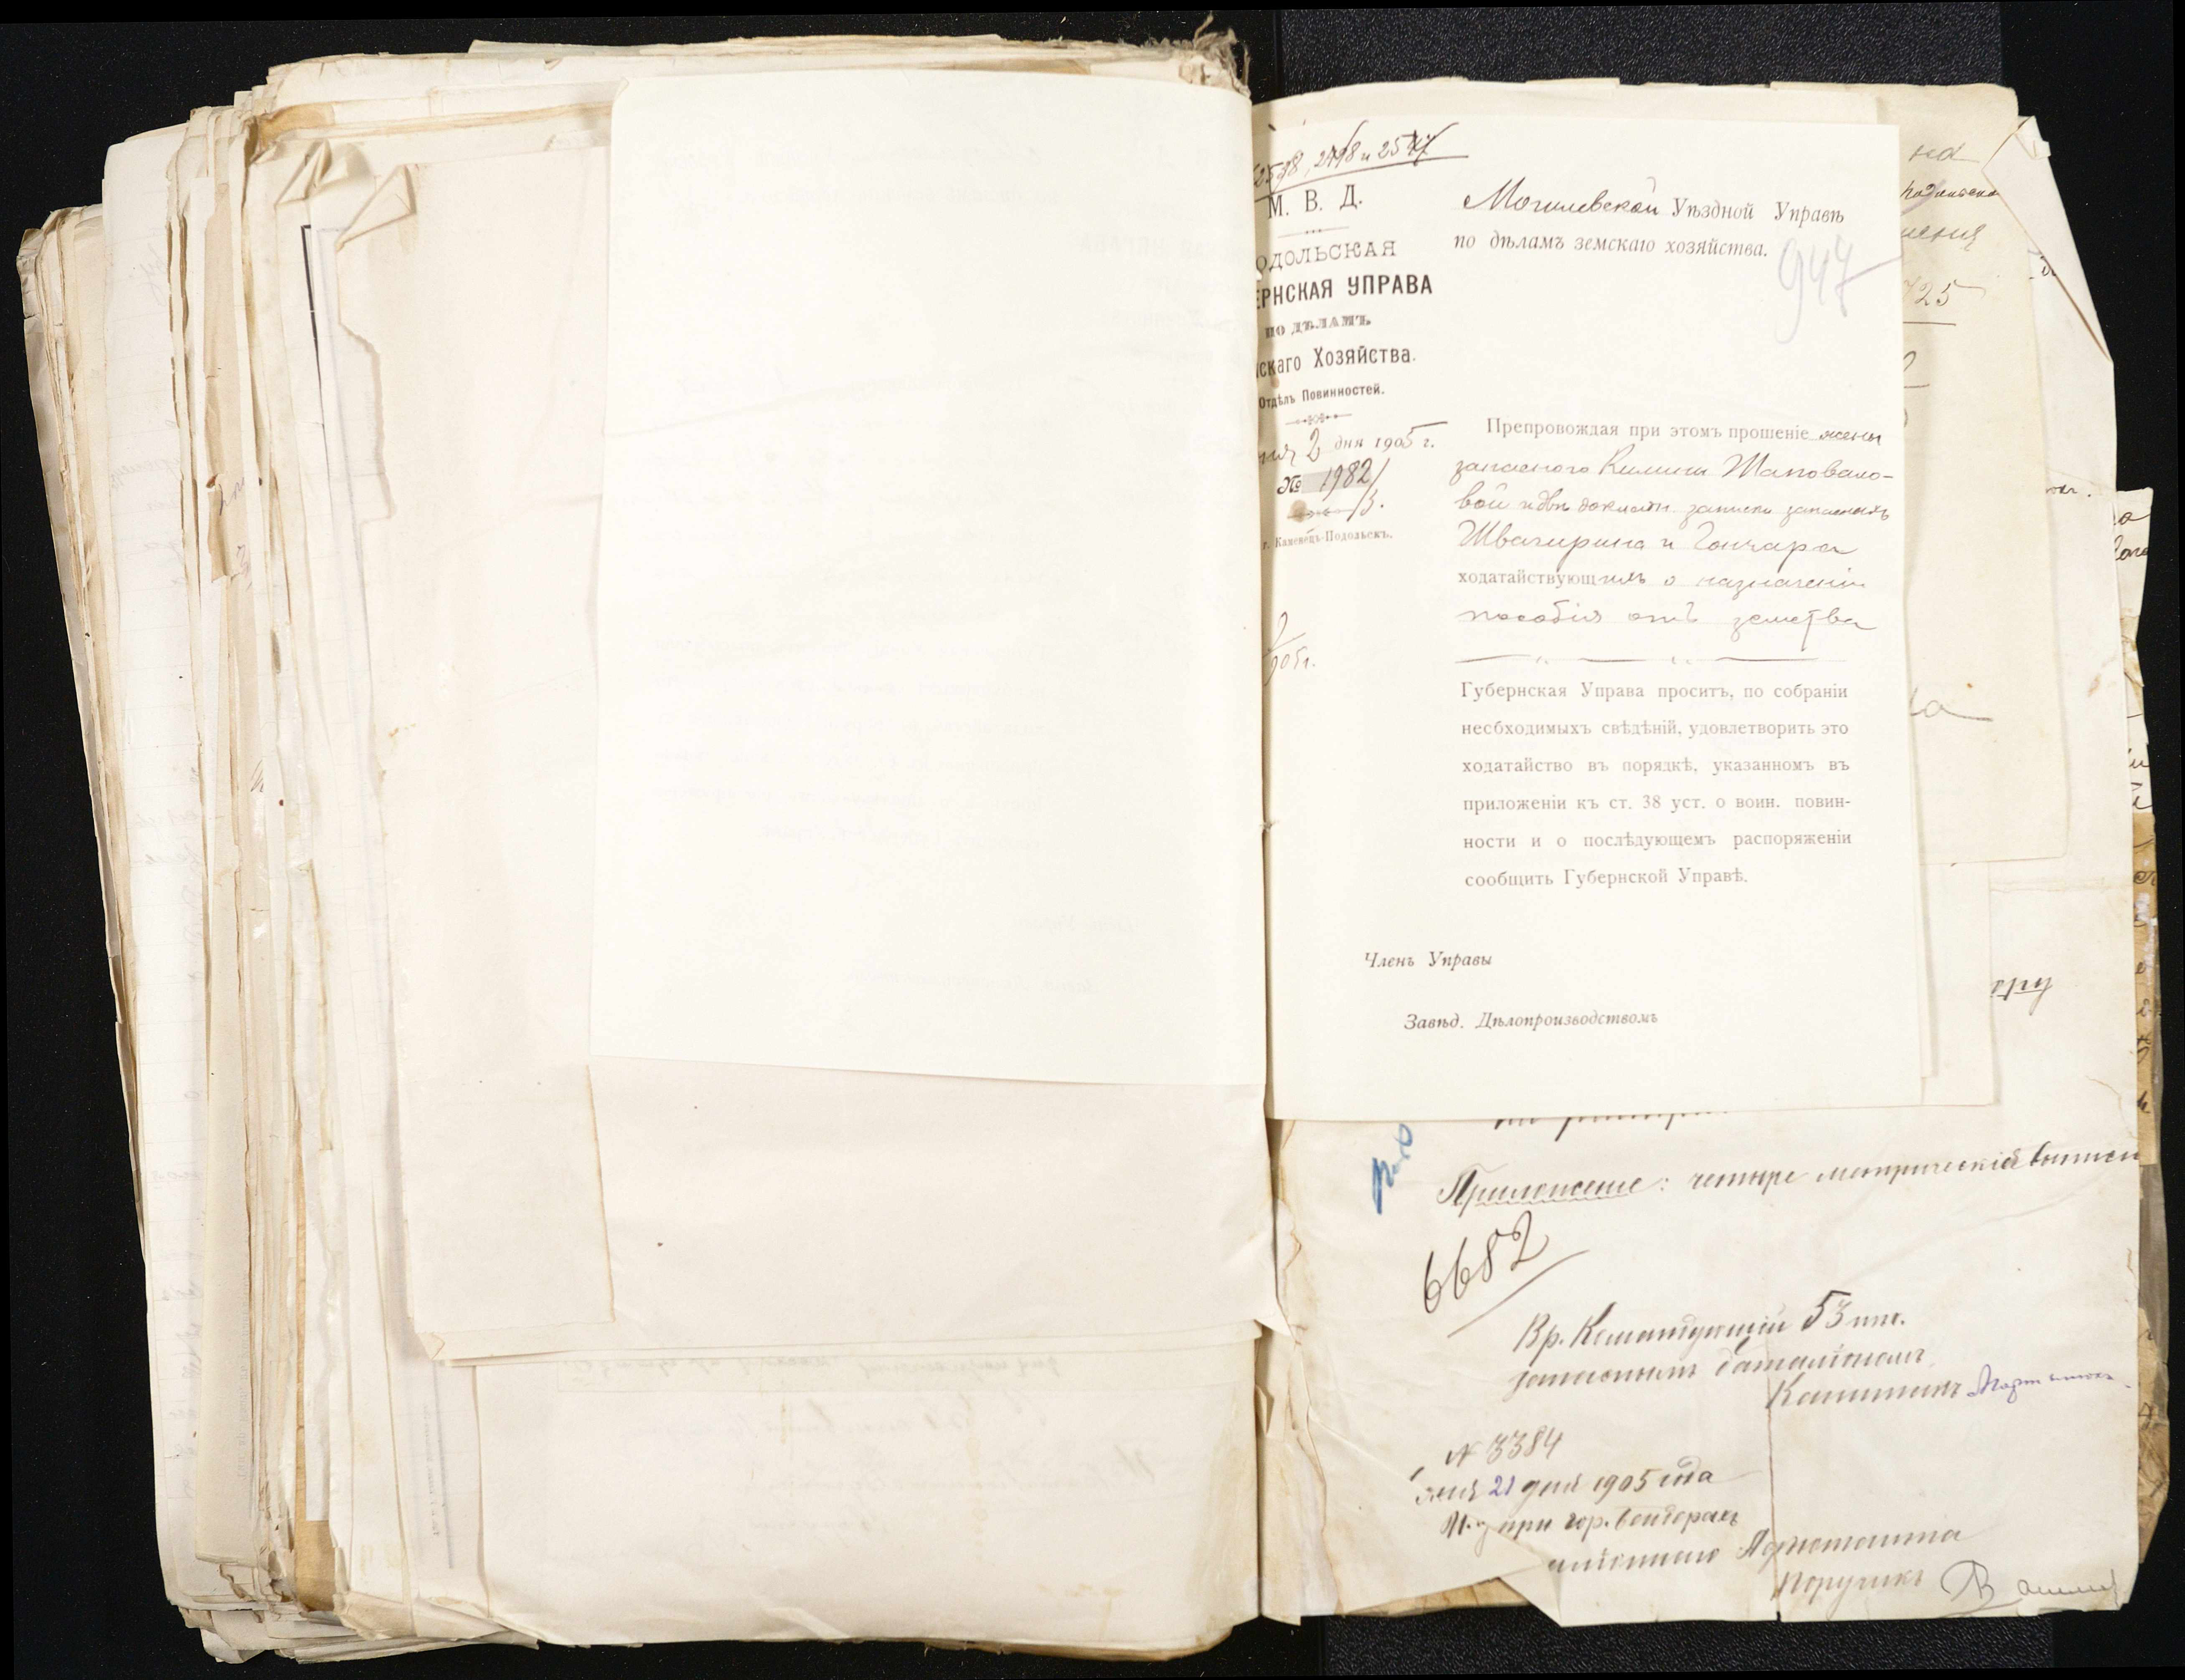 2598, 2498 и 2547
М. В. Д.
ОДОЛЬСКАЯ
ЕРНСКАЯ УПРАВА
по дѣламъ
скаго Хозяйства.
Отдѣлъ Повинностей.
2 дня 1905 г.
№ 1982/3.
г. Каменецъ-Подольскъ.
905 г.
Могилевской Уѣздной Управѣ
по дѣламъ земскаго хозяйства.
947
Препровождая при этомъ прошеніе жены
запасного Килини Шаповало-
вой и двѣ докладн. записки запасныхъ
Швагируна и Гончара
ходатайствующихъ о назначеніи
пособія отъ земства
Губернская Управа проситъ, по собраніи
необходимыхъ свѣдѣній, удовлетворить это
ходатайство въ порядкѣ, указанномъ въ
приложеніи къ ст. 38 уст. о воин. повин-
ности и о послѣдующемъ распоряженіи
сообщить Губернской Управѣ.
Членъ Управы
Завѣд. Дѣлопроизводствомъ
на
725
ору
Приложеніе: четыре метрическія выписи
6682
Вр. Командующій 53 пѣх.
запаснымъ баталіономъ,
Капитанъ
№ 3384
21 дня 1905 года
при гор. Бендерахъ
Адъютанта
Поручикъ